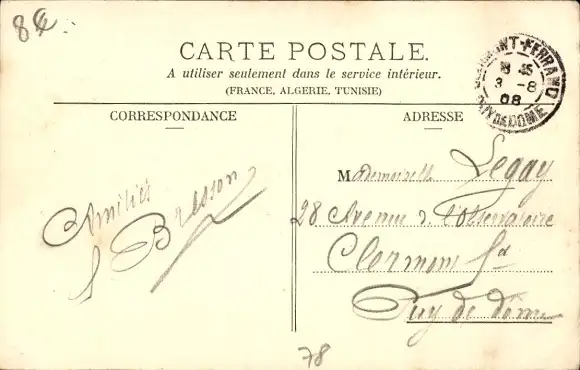 8
CARTE POSTALE.
A utiliser seulement dans le service intérieur.
(FRANCE, ALGERIE, TUNISIE)
CLERMONT-FERRAND
3 -8
08
PUY DE DOME
CORRESPONDANCE
Amitiés
Bresson
ADRESSE
Mademoiselle Legay
28 Avenue de l'Observatoire
Clermont Fd
Puy de dôme
78